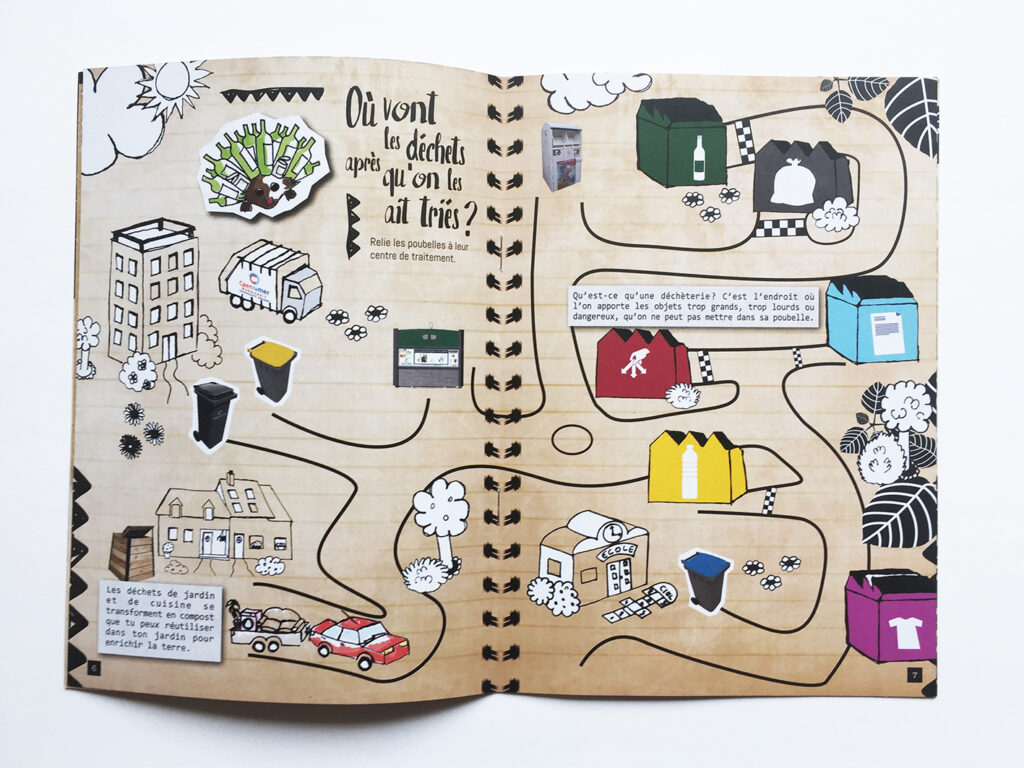 Où vont
les déchets
après qu'on les
ait triés ?
Relie les poubelles à leur
centre de traitement.
Caen la mer
Qu'est-ce qu'une déchèterie? C'est l'endroit où
l'on apporte les objets trop grands, trop lourds ou
dangereux, qu'on ne peut pas mettre dans sa poubelle.
ECOLE
CIEL
Les déchets de jardin
et de cuisine se
transforment en compost
que tu peux réutiliser
dans ton jardin pour
enrichir la terre.
6
7